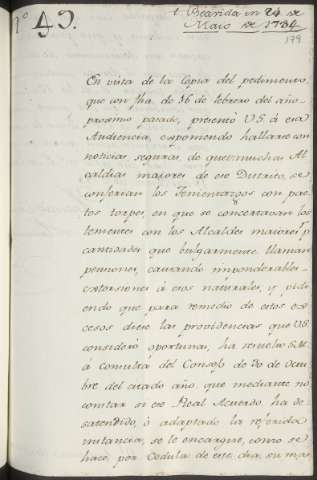 Nº 45.
Recivida en 24 de
Maio de 1784
179
En vista de la copia del pedimento,
que con fha. de 16 de febrero del año
proximo pasado, presentó V.S. á esa
Audiencia, exponiendo hallarse con
noticias seguras, de que en muchas Al
caldias maiores de ese Distrito, se
conferian los Tenientazgos con pac
tos torpes, en que se concertavan los
tenientes con los Alcaldes maiores pr
cantidades que bulgarmente llaman
pensiones, causando imponderables
extorsiones á esos naturales, y pidi
endo que para remedio de estos ex
cesos diese las providencias que V.S.
consideró oportunas, ha resuelto S.M.
á consulta del Consejo de 30 de Octu
bre del citado año, que mediante no
constar si ese Real Acuerdo, ha de
satendido, ó adaptado la referida
instancia, se le encargue, como se
hace por Cedula de este dia, su mas